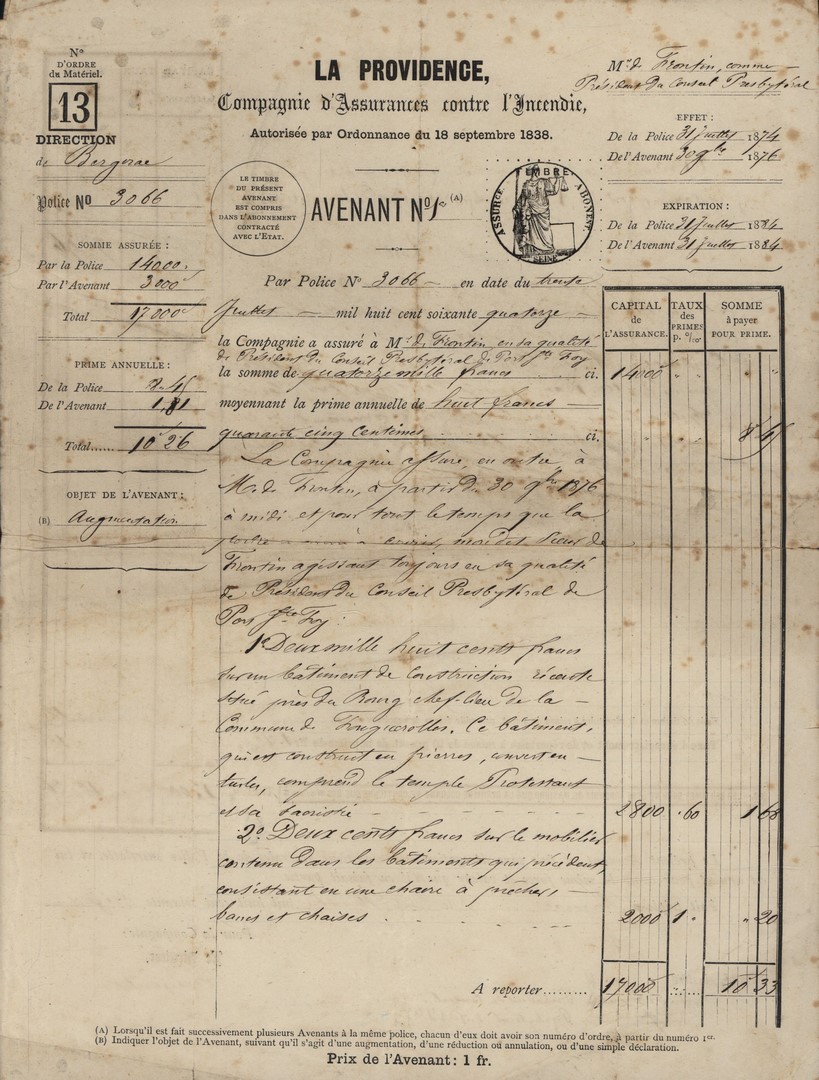 No
D'ORDRE
du Matériel.
13
DIRECTION
de Bergerac
Police No 3066
SOMME ASSURÉE :
Par la Police 14000.
Par l'Avenant 3000
Total 17000
PRIME ANNUELLE :
De la Police 8.45
De l'Avenant 1,81
Total...... 10 26
OBJET DE L'AVENANT :
(B) Augmentation
LA PROVIDENCE,
Compagnie d'Assurances contre l'Incendie,
Autorisée par Ordonnance du 18 septembre 1838.
LE TIMBRE
DU PRÉSENT
AVENANT
EST COMPRIS
DANS L'ABONNEMENT
CONTRACTÉ
AVEC L'ETAT.
AVENANT No 1er (A)
TIMBRE
ASSURCE ABONEMT
SEINE
Mr de Frontin, comme
Président du Conseil Presbytéral
EFFET :
De la Police 31 Juillet 1874
De l'Avenant 30 9bre 1876
EXPIRATION :
De la Police 31 Juillet 1884
De l'Avenant 31 Juillet 1884
Par Police No 3066 — en date du trente
Juillet — mil huit cent soixante quatorze —
la Compagnie a assuré à M. de Frontin, en sa qualité
de Président du Conseil Presbytéral de Port Ste Foy
la somme de quatorze mille francs ci. 14000
moyennant la prime annuelle de huit francs —
quarante cinq centimes ci. 8 45
La Compagnie assure, en outre, à
M. de Frontin, à partir du 30 9bre 1876
à midi et pour tout le temps que la
police a encore à courir, mondit Sieur de
Frontin agissant toujours en sa qualité
de Président du Conseil Presbytéral de
Port Ste Foy :
1o Deux mille huit cents francs
sur un bâtiment de construction récente
situé près du Bourg chef-lieu de la —
Commune de Fougueyrolles. Ce bâtiment,
qui est construit en pierres, couvert en —
tuiles, comprend le temple Protestant
et sa sacristie 2800 .60 1 68
2o Deux cents francs sur le mobilier
contenu dans les bâtiments qui précèdent,
consistant en une chaire à prêcher, —
bancs et chaises. 2000 1 " 20
A reporter......... 17000 10 33
CAPITAL
de
L'ASSURANCE.
TAUX
des
PRIMES
p. 0/00.
SOMME
à payer
POUR PRIME.
(A) Lorsqu'il est fait successivement plusieurs Avenants à la même police, chacun d'eux doit avoir son numéro d'ordre, à partir du numéro 1er.
(B) Indiquer l'objet de l'Avenant, suivant qu'il s'agit d'une augmentation, d'une réduction ou annulation, ou d'une simple déclaration.
Prix de l'Avenant : 1 fr.